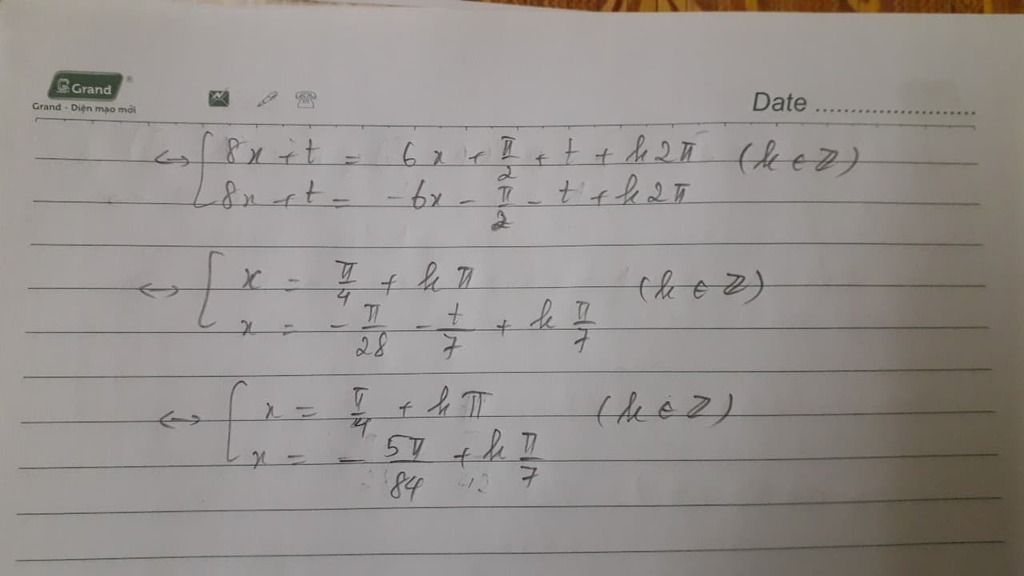 Grand
Grand - Diện mạo mới
Date ........................
↔ [ 8x + t = 6x + π/2 + t + k2π (k ∈ ℤ)
8x + t = -6x - π/2 - t + k2π
↔ [ x = π/4 + kπ (k ∈ ℤ)
x = - π/28 - t/7 + k π/7
↔ [ x = π/4 + kπ (k ∈ ℤ)
x = - 5π/84 + k π/7